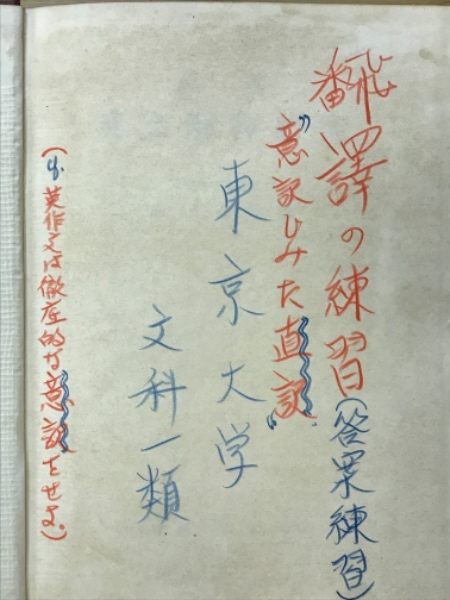 飜譯の練習(答案練習)
"意訳じみた直訳"
東京大学
文科一類
(英作文は徹底的な意訳をせよ。)